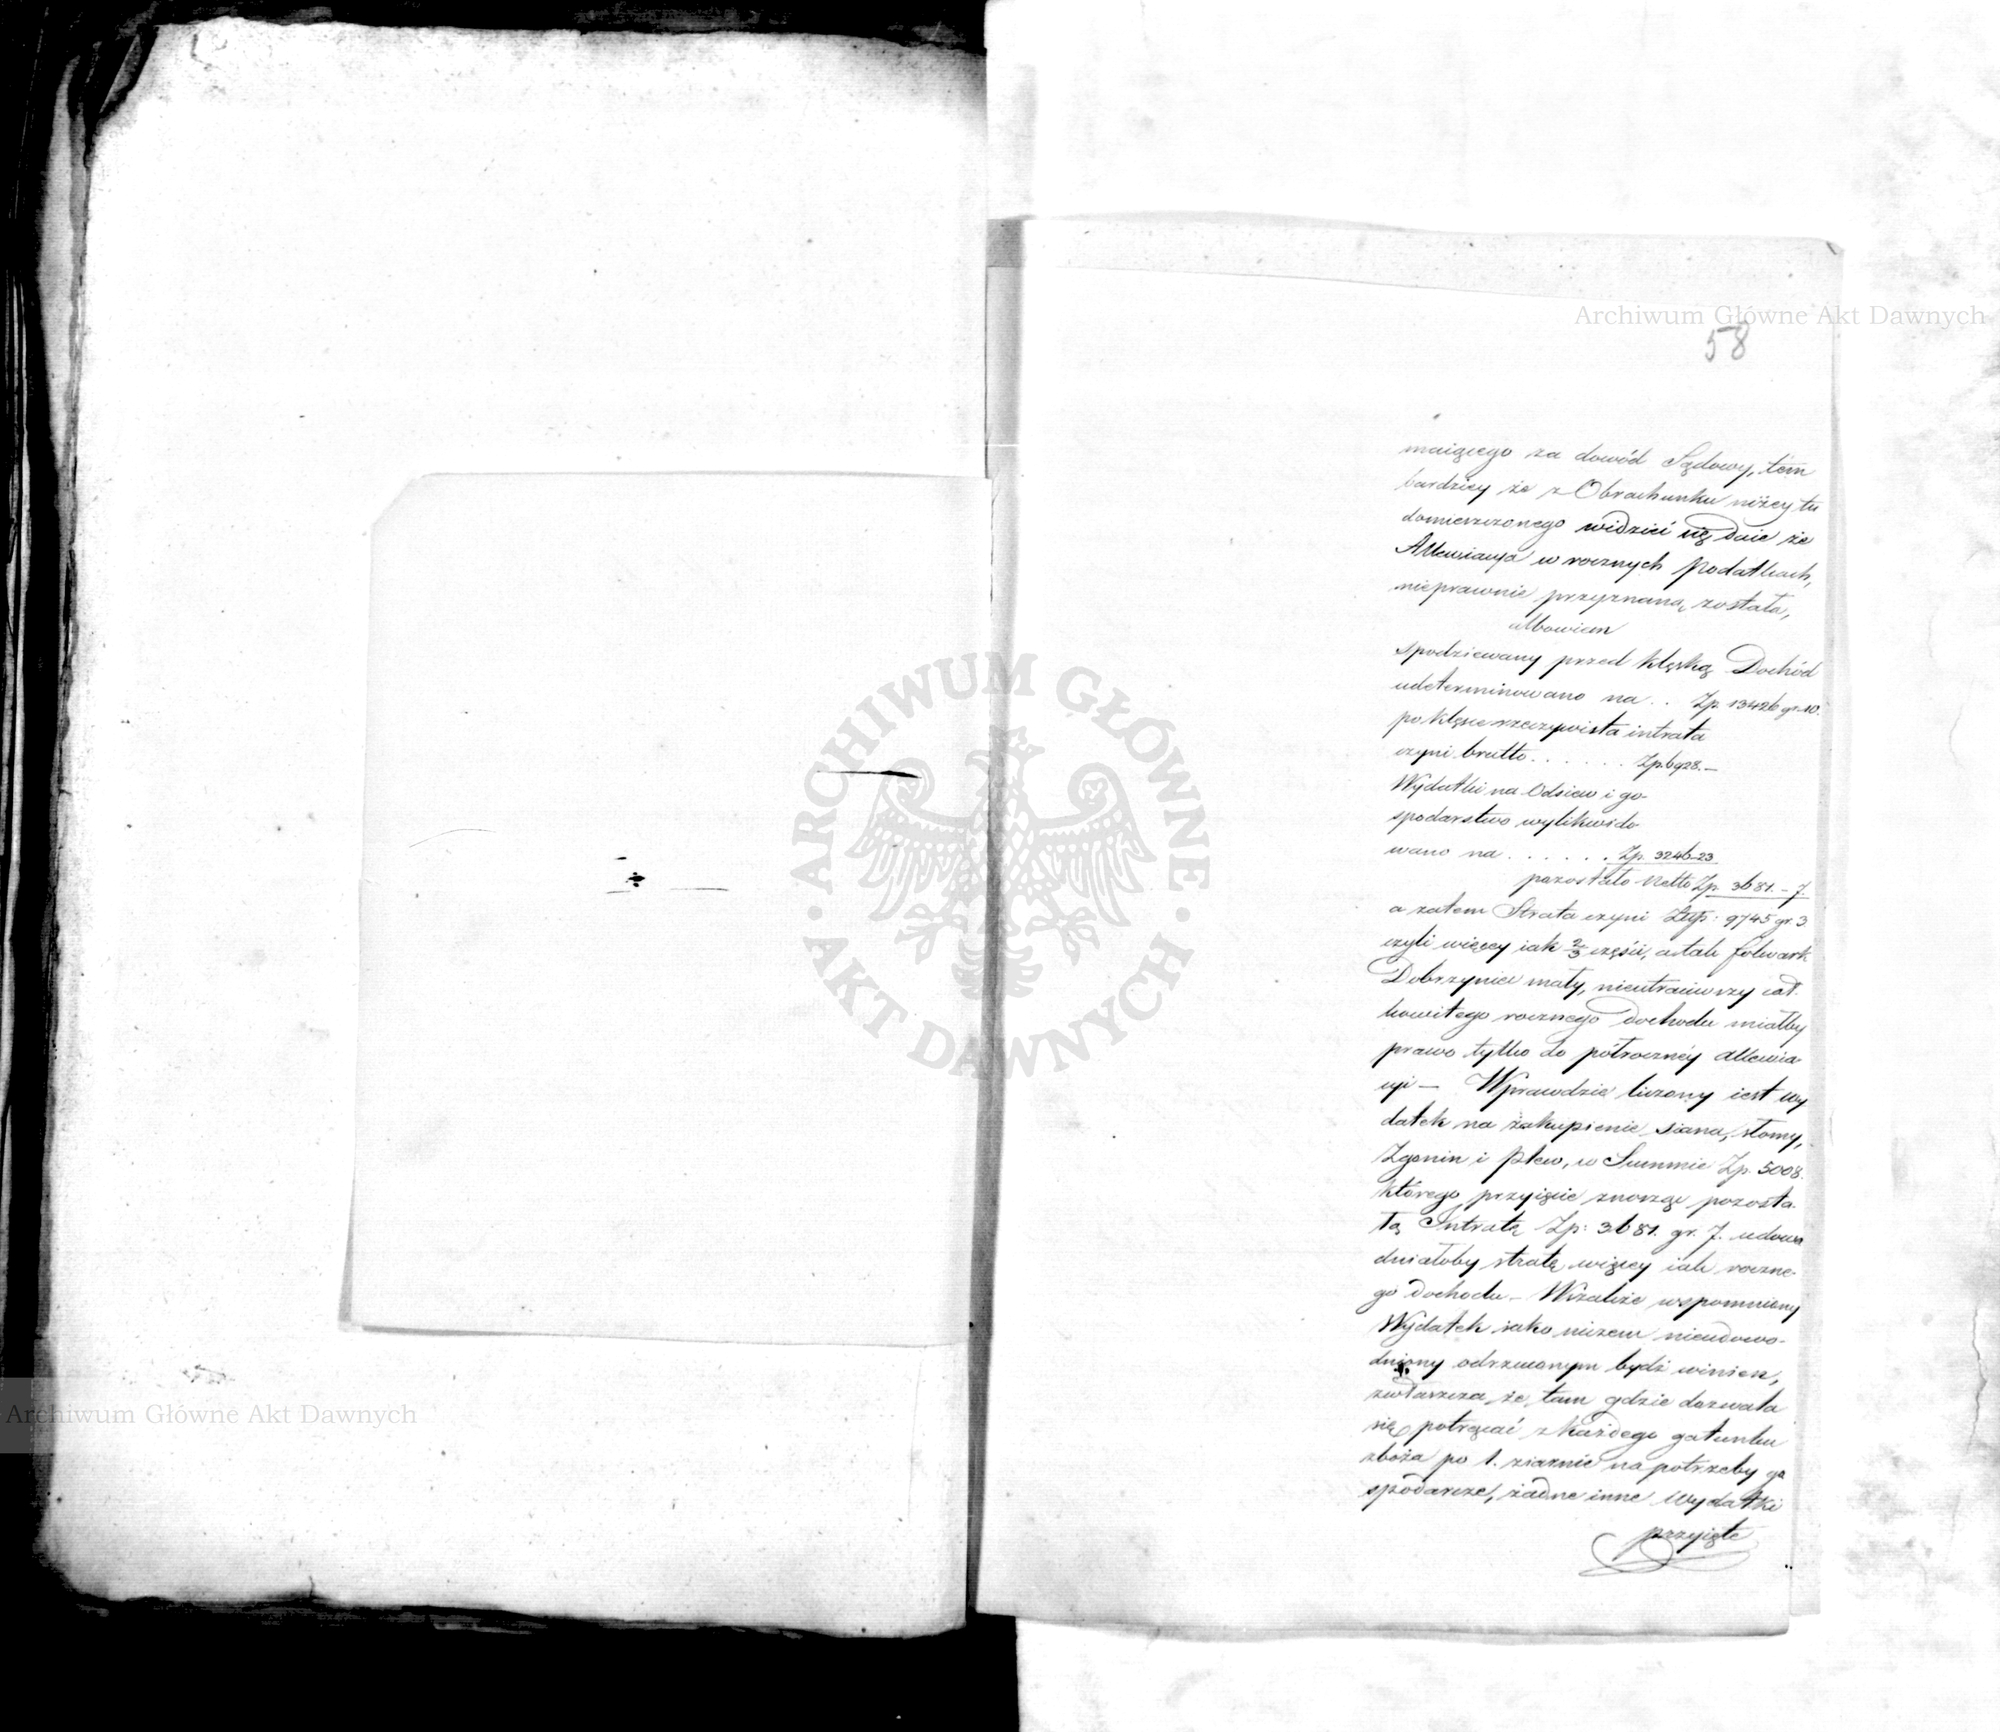 Archiwum Główne Akt Dawnych
58
maiącego za dowód Sądowy, tem
bardziey że z Obrachunku niżey tu
domieszczonego widzieć się daie że
Allewiacya w rocznych podatkach,
nieprawnie przyznaną została,
albowiem
spodziewany przed klęską Dochód
udeterminowano na . . Zp. 13426 gr. 10.
po klęsce rzeczywista intrata
czyni brutto . . . . . . Zp. 6928. —
Wydatki na Odsiew i go-
spodarstwo wylikwido
wano na . . . . . . Zp. 3246-23
pozostało Netto Zp. 3681. – 7.
a zatem Strata czyni Złp: 9745 gr. 3
czyli więcey iak 2/3 części, a tak folwark
Dobrzynice mały, nieutraciwszy cał-
kowitego rocznego dochodu miałby
prawo tylko do półroczney Allewia
cyi — Wprawdzie liczony iest wy
datek na zakupienie siana, słomy,
Zgonin i Plew, w Summie Zp. 5008.
którego przyięcie znosząc pozosta-
łą Intratę Zp: 3681. gr. 7. udowa
dniałoby stratę więcey iak roczne-
go dochodu — Wszakże wspomniony
Wydatek iako niczem nieudowo-
dniony odrzuconym bydź winien,
zwłaszcza, że tam gdzie dozwala
się potrącać z każdego gatunku
zboża po 1. ziarnie na potrzeby go
spodarcze, żadne inne wydatki
przyięte
ARCHIWUM GŁÓWNE
AKT DAWNYCH
Archiwum Główne Akt Dawnych